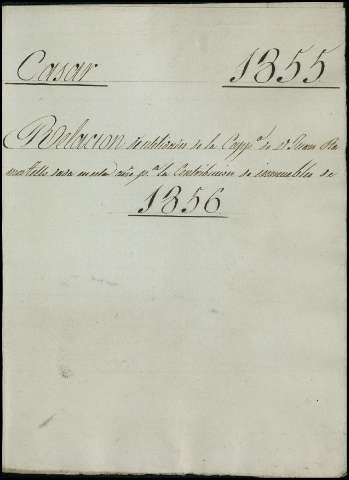 Casar 1855
Relacion de utilidades de la Capp.ª de D.n Juan Ra
mon dada en este año p.ª la Contribucion de inmuebles de
1856